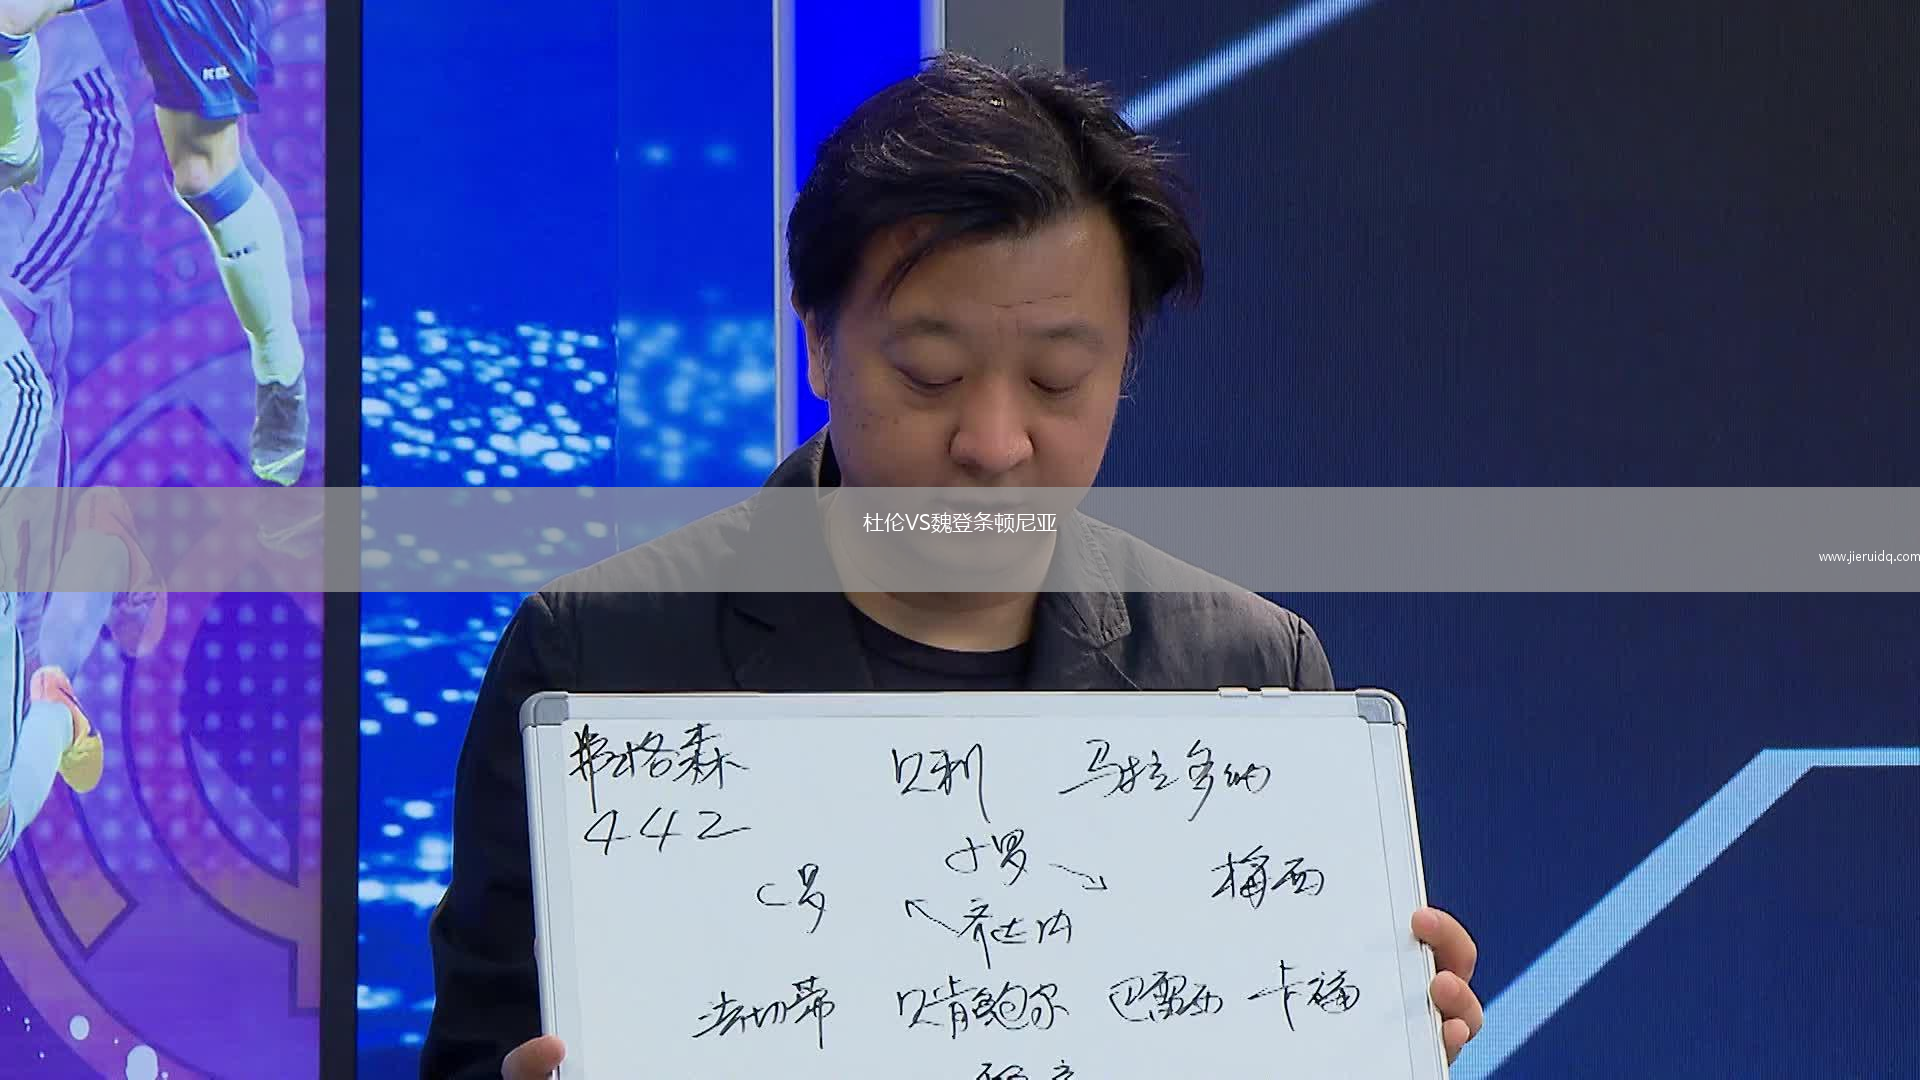 KELME
杜伦VS魏登条顿尼亚
www.jieruidq.com
弗格森 贝利 马拉多纳
442
小罗
C罗 梅西
齐达内
法切蒂 贝肯鲍尔 巴雷西 卡福